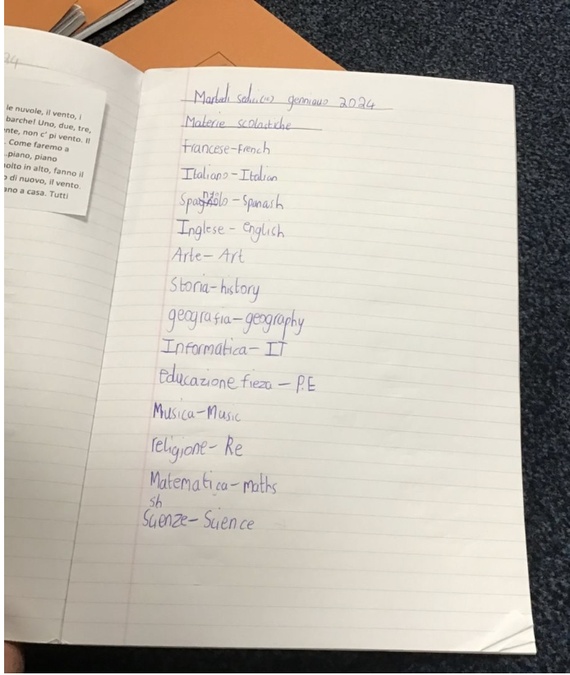 24
le nuvole, il vento, i
barche! Uno, due, tre,
nte, non c' pi vento. Il
. Come faremo a
.piano, piano
molto in alto, fanno il
o di nuovo, il vento.
ano a casa. Tutti
Martedì gennaio 2024
Materie scolastiche
francese-French
Italiano-Italian
Spagnolo-Spanash
Inglese-Englich
Arte-Art
Storia-history
geografia-geography
Informatica-IT
educazione fieza-P.E
Musica-Music
religione-Re
Matematica-maths
sh
Scienze-Science